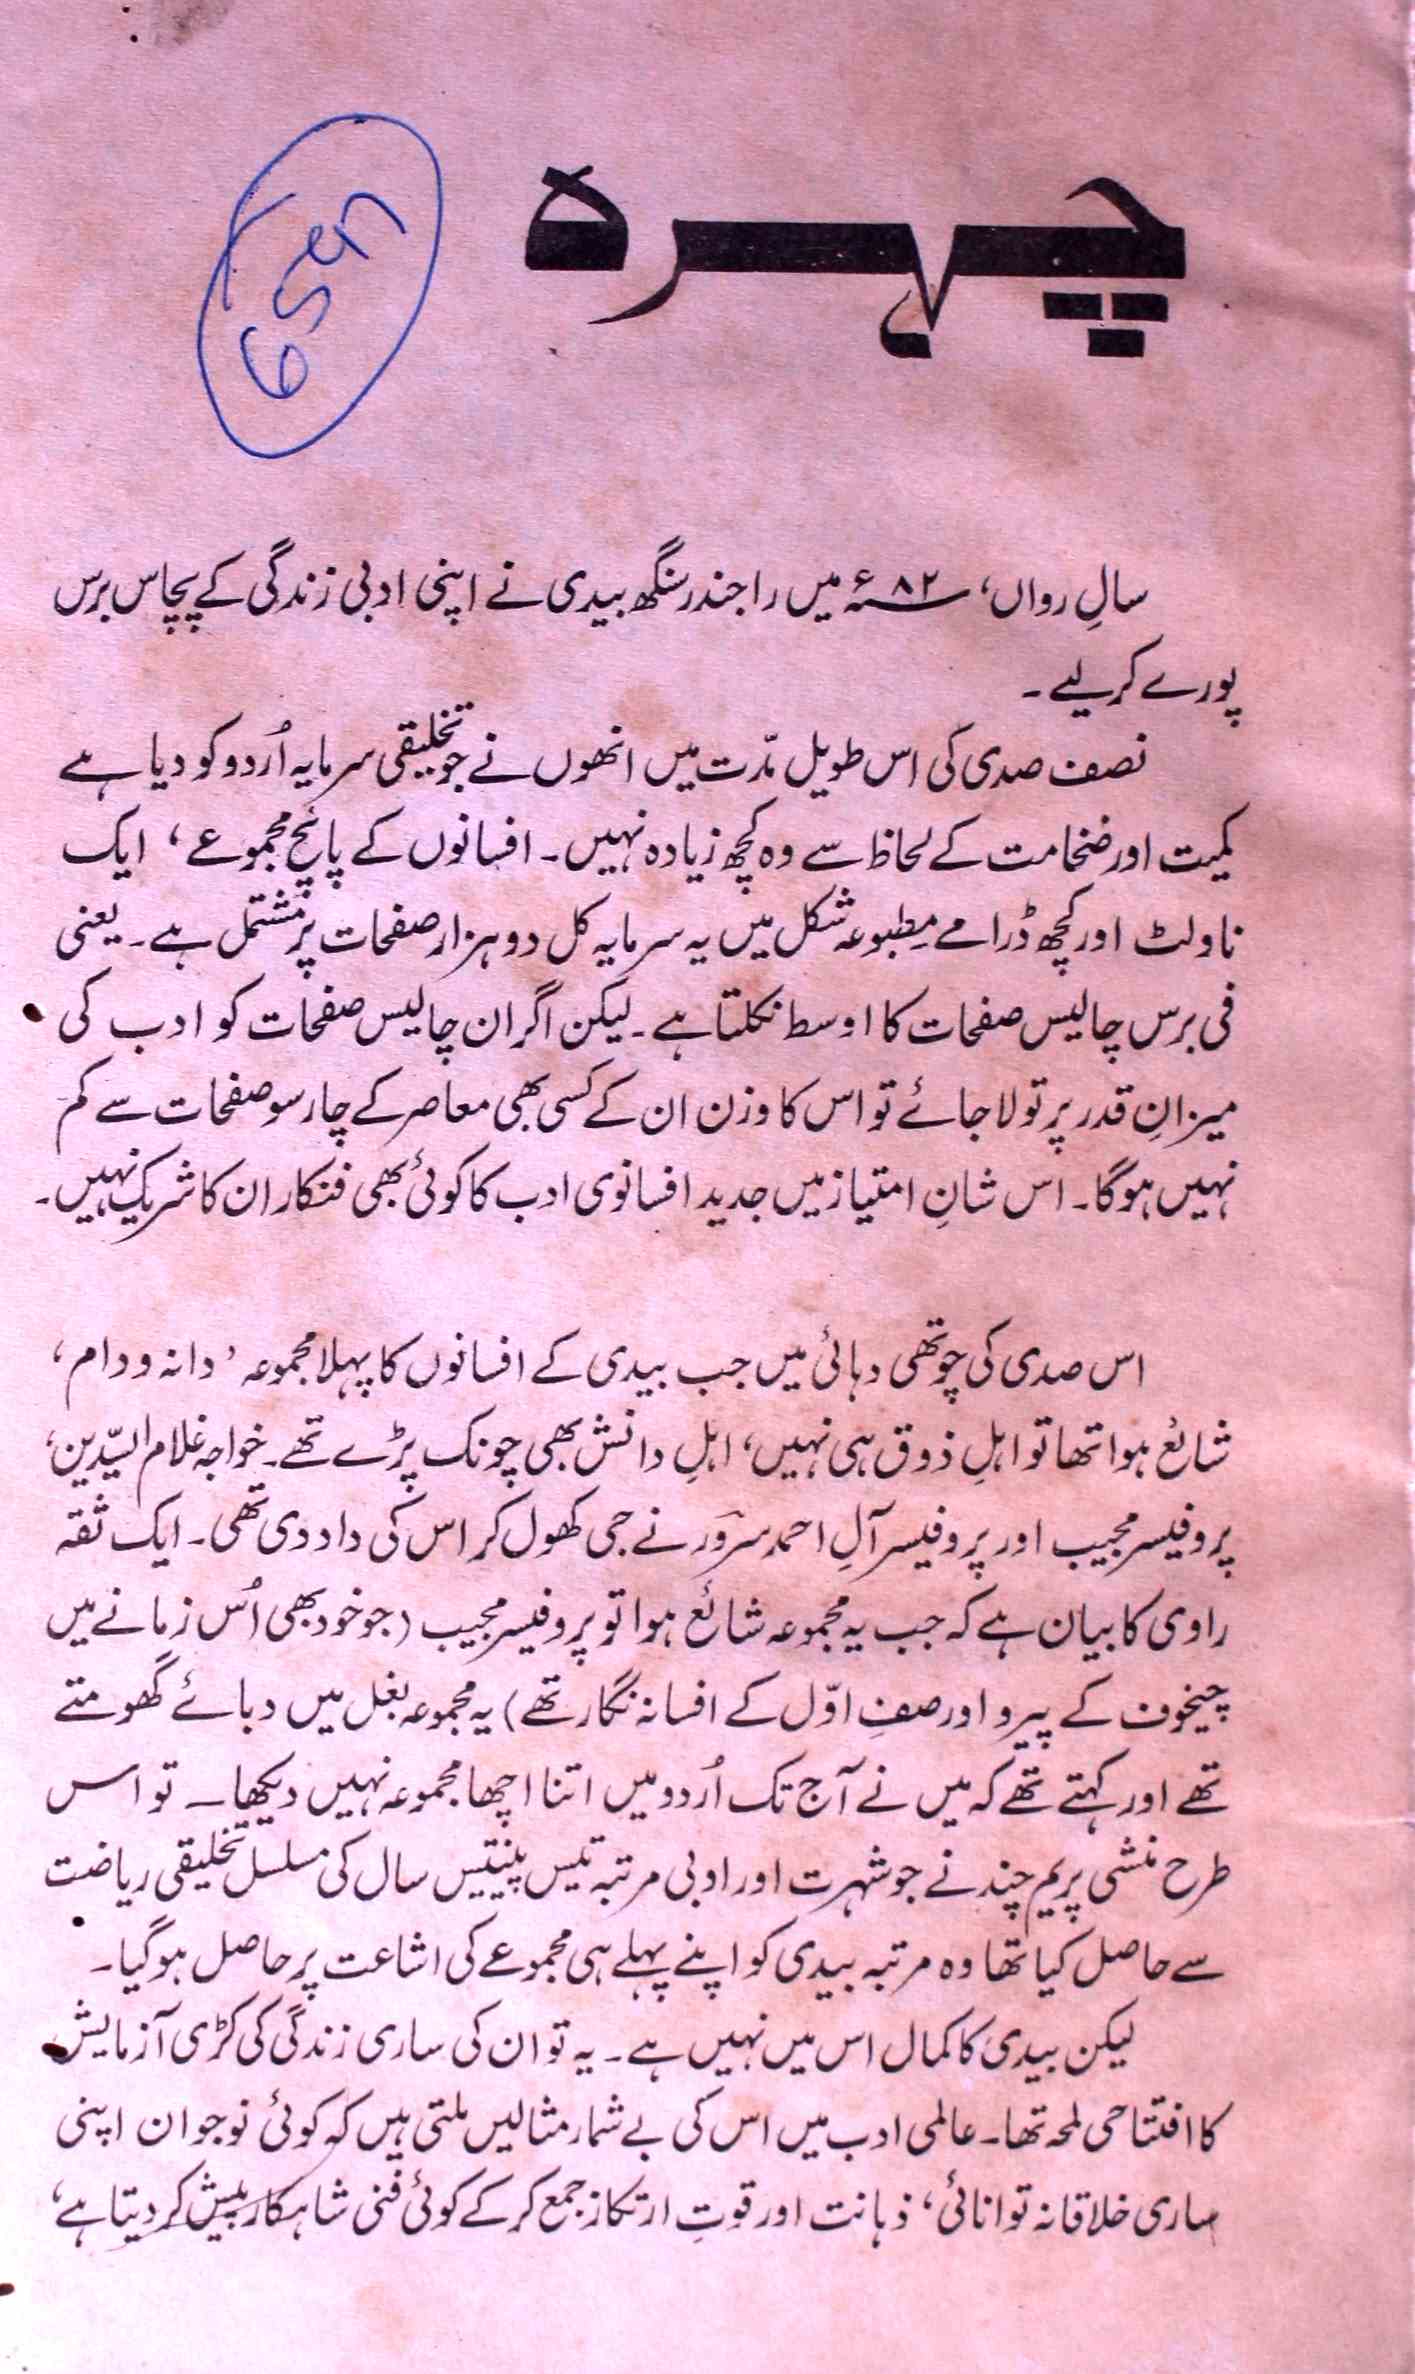 چہرہ
سالِ رواں، ۸۲ء میں راجندر سنگھ بیدی نے اپنی ادبی زندگی کے پچاس برس
پورے کرلیے۔
نصف صدی کی اس طویل مدّت میں انھوں نے جو تخلیقی سرمایہ اُردو کو دیا ہے
کمیت اور ضخامت کے لحاظ سے وہ کچھ زیادہ نہیں۔ افسانوں کے پانچ مجموعے، ایک
ناولٹ اور کچھ ڈرامے مطبوعہ شکل میں یہ سرمایہ کل دو ہزار صفحات پر مشتمل ہے۔ یعنی
فی برس چالیس صفحات کا اوسط نکلتا ہے۔ لیکن اگر ان چالیس صفحات کو ادب کی
میزانِ قدر پر تولا جائے تو اس کا وزن ان کے کسی بھی معاصر کے چار سو صفحات سے کم
نہیں ہوگا۔ اس شانِ امتیاز میں جدید افسانوی ادب کا کوئی بھی فنکار ان کا شریک نہیں۔
اس صدی کی چوتھی دہائی میں جب بیدی کے افسانوں کا پہلا مجموعہ ’دانہ و دام‘
شائع ہوا تھا تو اہلِ ذوق ہی نہیں، اہلِ دانش بھی چونک پڑے تھے۔ خواجہ غلام السیّدین،
پروفیسر مجیب اور پروفیسر آلِ احمد سرور نے جی کھول کر اس کی داد دی تھی۔ ایک ثقہ
راوی کا بیان ہے کہ جب یہ مجموعہ شائع ہوا تو پروفیسر مجیب (جو خود بھی اُس زمانے میں
چیخوف کے پیرو اور صفِ اوّل کے افسانہ نگار تھے) یہ مجموعہ بغل میں دبائے گھومتے
تھے اور کہتے تھے کہ میں نے آج تک اُردو میں اتنا اچھا مجموعہ نہیں دیکھا۔ تو اس
طرح منشی پریم چند نے جو شہرت اور ادبی مرتبہ تیس پینتیس سال کی مسلسل تخلیقی ریاضت
سے حاصل کیا تھا وہ مرتبہ بیدی کو اپنے پہلے ہی مجموعے کی اشاعت پر حاصل ہوگیا۔
لیکن بیدی کا کمال اس میں نہیں ہے۔ یہ تو ان کی ساری زندگی کی کڑی آزمایش
کا افتتاحی لمحہ تھا۔ عالمی ادب میں اس کی بے شمار مثالیں ملتی ہیں کہ کوئی نوجوان اپنی
ساری خلاقانہ توانائی، ذہانت اور قوتِ ارتکاز جمع کرکے کوئی فنی شاہکار پیش کر دیتا ہے،